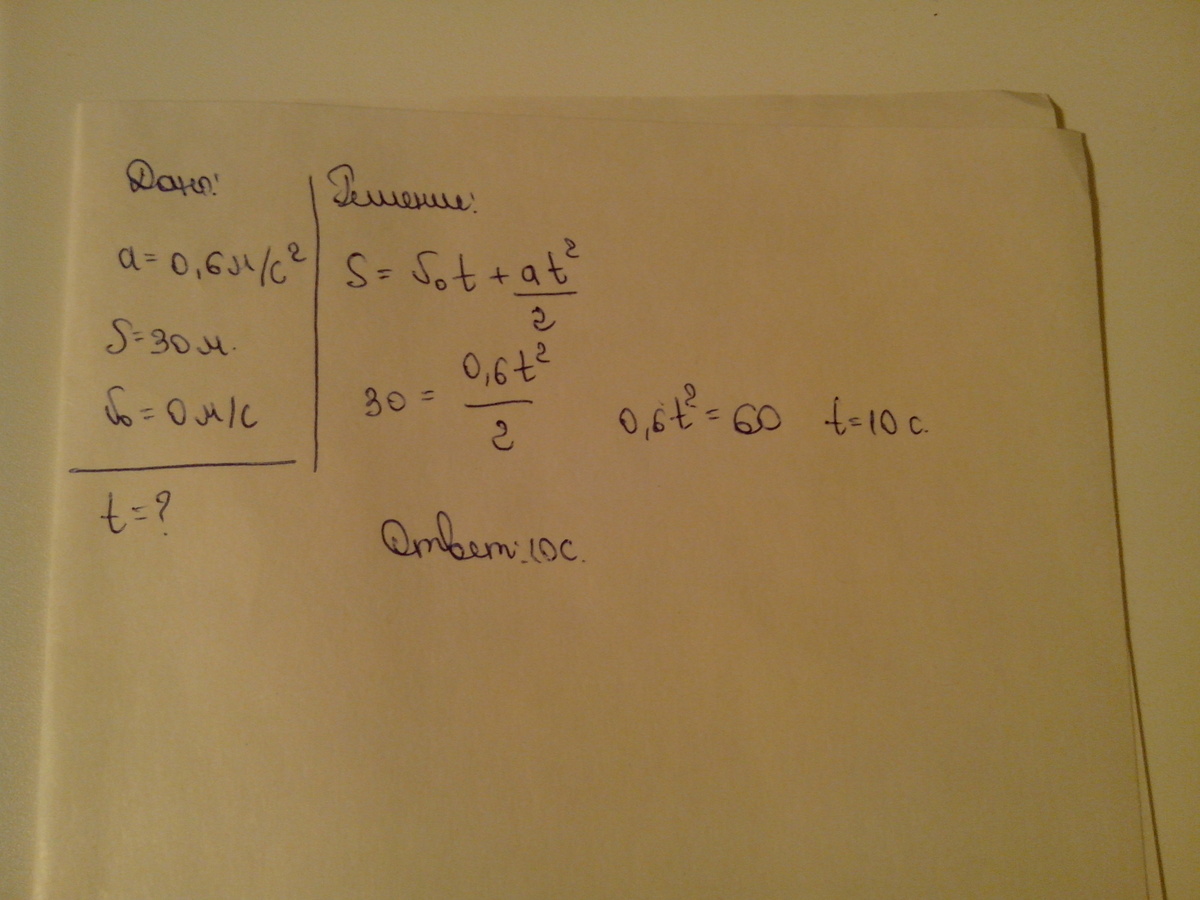 Дано:
a = 0,6 м/с²
S = 30 м.
v₀ = 0 м/с
t = ?
Решение:
S = v₀t + at²/2
30 = 0,6t²/2
0,6t² = 60 t = 10 с.
Ответ: 10 с.